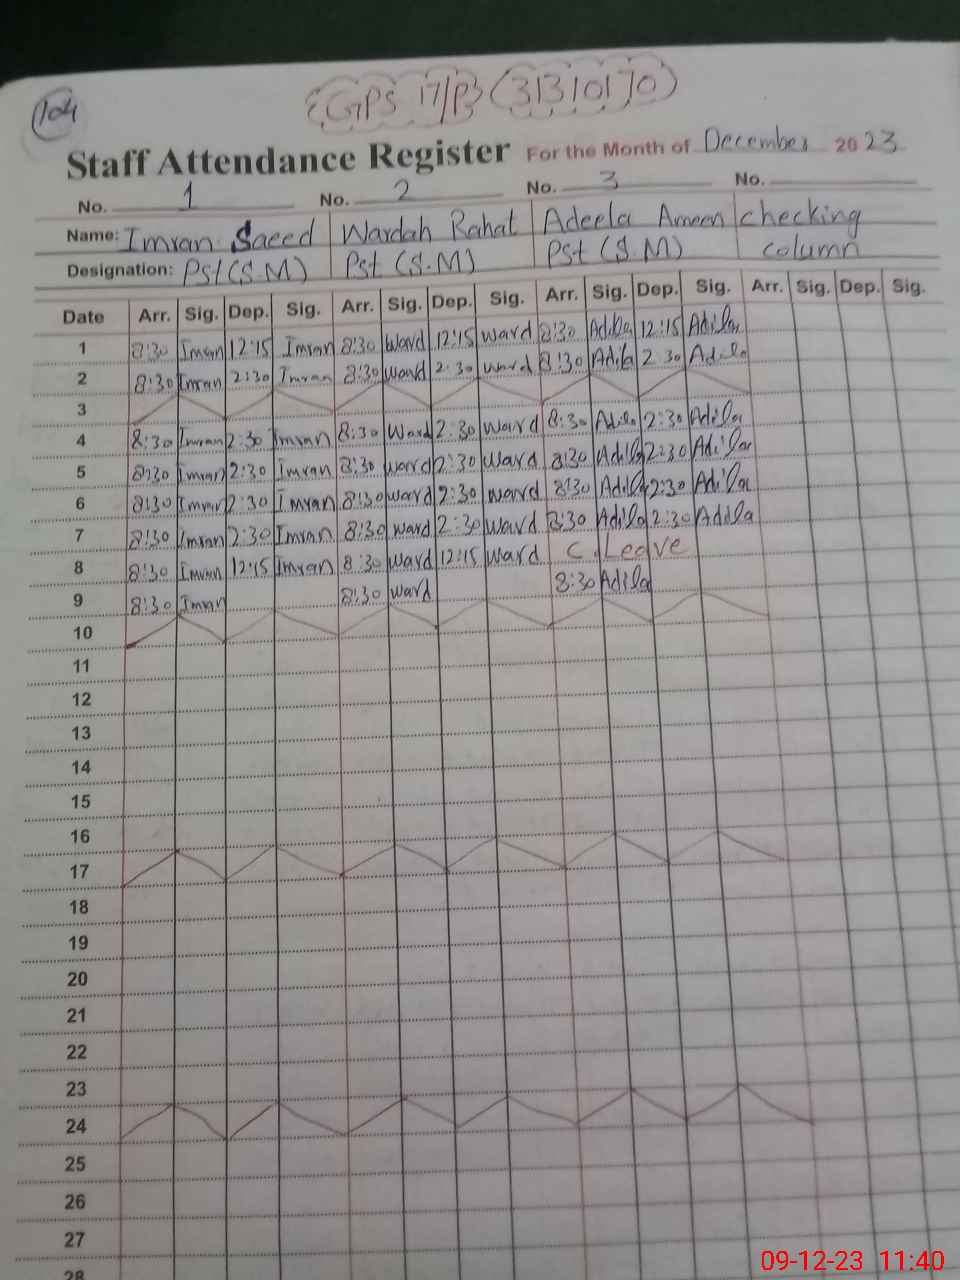 104
GPS 17/P (31310170)
Staff Attendance Register For the Month of December 2023
No. 1 No. 2 No. 3 No.
Name: Imran Saeed Wardah Rahat Adeela Ameen checking
Designation: Pst (S.M) Pst (S.M) Pst (S.M) column
Date Arr. Sig. Dep. Sig. Arr. Sig. Dep. Sig. Arr. Sig. Dep. Sig. Arr. Sig. Dep. Sig.
1 8:30 Imran 12:15 Imran 8:30 Ward 12:15 Ward 8:30 Adila 12:15 Adila
2 8:30 Imran 2:30 Imran 8:30 Ward 2:30 Ward 8:30 Adila 2:30 Adila
3
4 8:30 Imran 2:30 Imran 8:30 Ward 2:30 Ward 8:30 Adila 2:30 Adila
5 8:30 Imran 2:30 Imran 8:30 Ward 2:30 Ward 8:30 Adila 2:30 Adila
6 8:30 Imran 2:30 Imran 8:30 Ward 2:30 Ward 8:30 Adila 2:30 Adila
7 8:30 Imran 2:30 Imran 8:30 Ward 2:30 Ward 8:30 Adila 2:30 Adila
8 8:30 Imran 12:15 Imran 8:30 Ward 12:15 Ward C. Leave
9 8:30 Imran 8:30 Ward 8:30 Adila
10
11
12
13
14
15
16
17
18
19
20
21
22
23
24
25
26
27
28
09-12-23 11:40